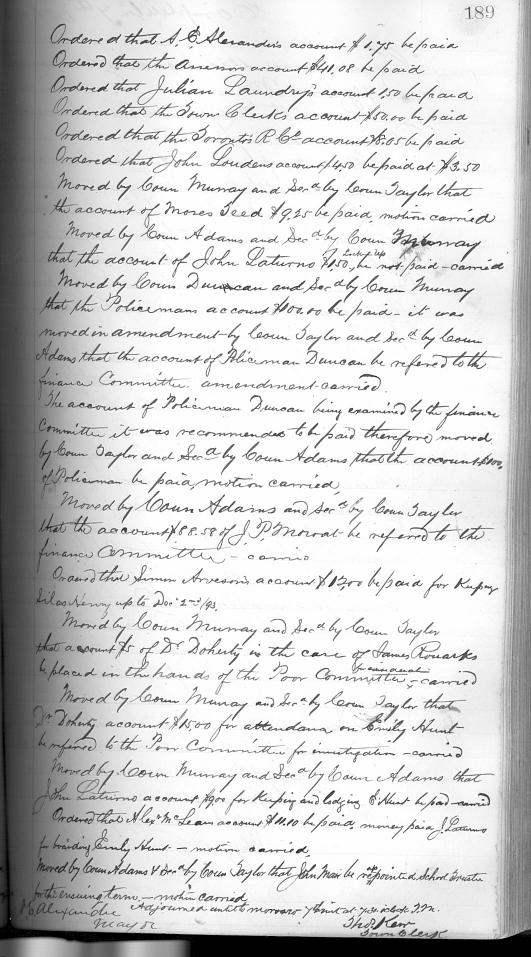 189
Ordered that A. E. Alexander's account $1.75 be paid
Ordered that the Assessors account $41.08 be paid
Ordered that Julian Laundry's account 1.50 be paid
Ordered that the Town Clerks account $50.00 be paid
Ordered that the Toronto R Co account $8.05 be paid
Ordered that John Loudens account $4.50 be paid at $3.50
Moved by Coun Murray and Secd by Coun Taylor that
the account of Moses Teed $9.25 be paid, motion carried
Moved by Coun Adams and Secd by Coun Murray
that the account of John Laturno $1.50, be not paid - carried
Moved by Coun Duncan and Secd by Coun Murray
that the Policemans account $100.00 be paid - it was
moved in amendment by Coun Taylor and Secd by Coun
Adams that the account of Policeman Duncan be refered to the
finance Committee. amendment carried
The account of Policeman Duncan being examined by the finance
Committee it was recommended to be paid therefore moved
by Coun Taylor and Secd by Coun Adams that the account $100,
of Policeman be paid, motion carried
Moved by Coun Adams and Secd by Coun Taylor
that the account $88.58 of J. P. Mowat be refered to the
finance Committee - carried
Ordered that Simon Arveson's account $12.00 be paid for Keeping
Silas Henry up to Decr 2nd /93.
Moved by Coun Murray and Secd by Coun Taylor
that account $5 of Dr Doherty in the case of James Rouarks
be placed in the hands of the Poor Committee - carried
Moved by Coun Murray and Secd by Coun Taylor that
Dr Doherty account $15.00 for attendance on Emily Hunt
be refered to the Poor Committee for investigation - carried
Moved by Coun Murray and Secd by Coun Adams that
John Laturno account $9.00 for Keeping and lodging E Hunt be paid - carried
Ordered that Alexr McLean account $11.10 be paid, money paid J. Laturno
for boarding Emily Hunt - motion carried
Moved by Coun Adams & Secd by Coun Taylor that John Mair be reappointed School Trustee
for the ensuing term, - motion carried
Adjourned until tomorrow at 7.30 oclock P.M.
Alexander
Mayor
Thos Kerr
Town Clerk